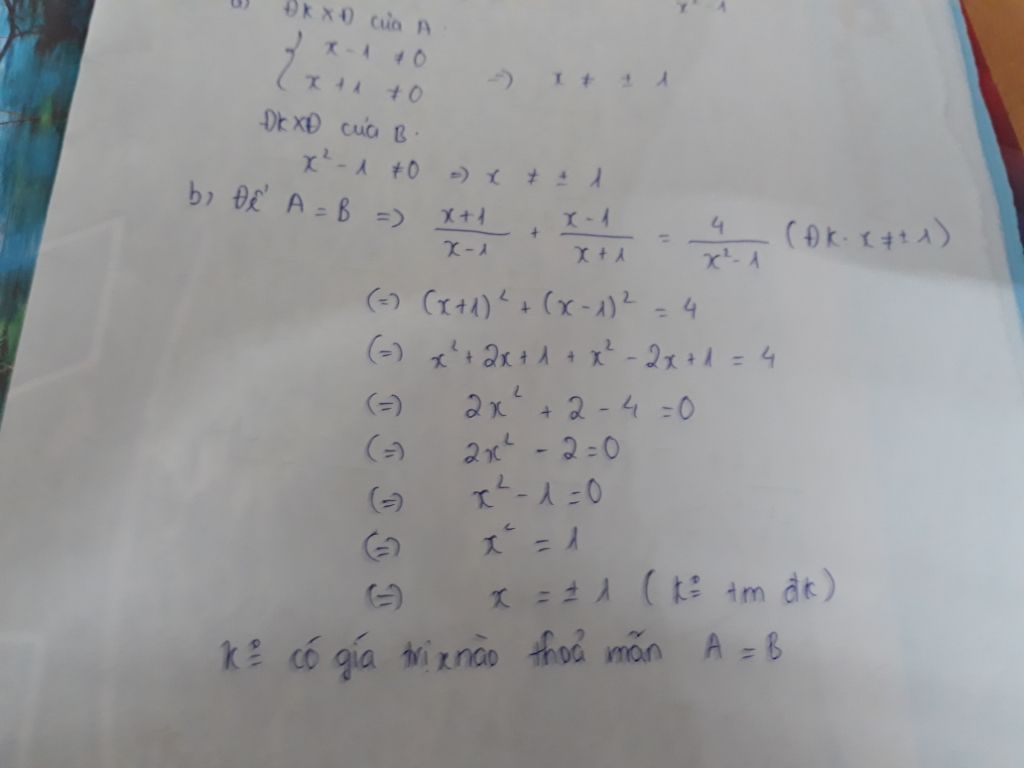 a) ĐKXĐ của A.
x² - 1
{ x - 1 ≠ 0
x + 1 ≠ 0 => x ≠ ± 1
ĐKXĐ của B.
x² - 1 ≠ 0 => x ≠ ± 1
b, Để A = B => (x+1)/(x-1) + (x-1)/(x+1) = 4/(x²-1) (ĐK. x ≠ ± 1)
(=) (x+1)² + (x-1)² = 4
(=) x² + 2x + 1 + x² - 2x + 1 = 4
(=) 2x² + 2 - 4 = 0
(=) 2x² - 2 = 0
(=) x² - 1 = 0
(=) x² = 1
(=) x = ± 1 (kº tm đk)
kº có gía trị x nào thoả mãn A = B